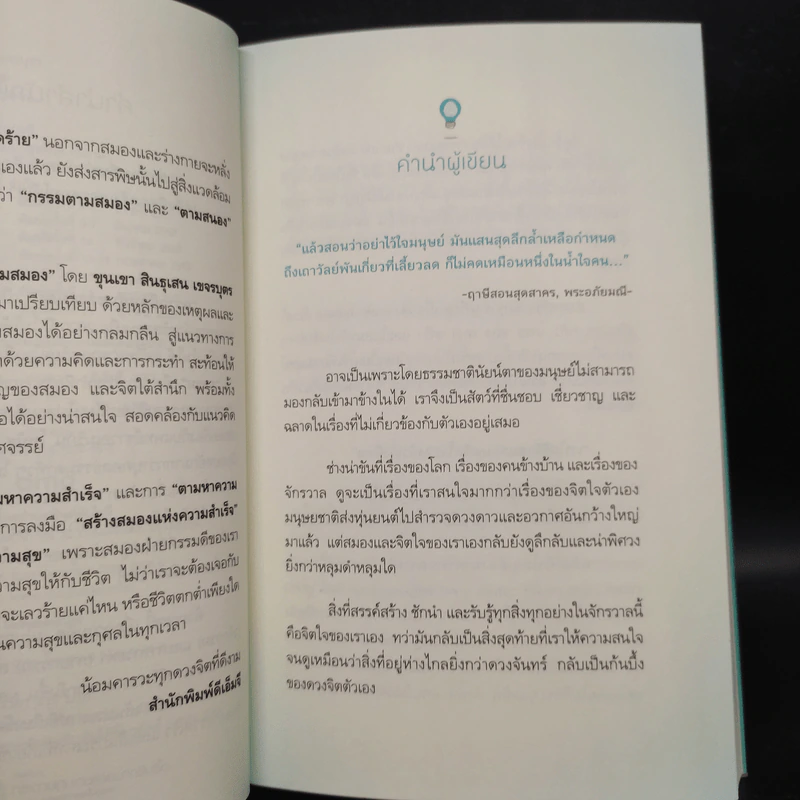 ดร้าย” นอกจากสมองและร่างกายจะหลั่ง
เองแล้ว ยังส่งสารพิษนั้นไปสู่สิ่งแวดล้อม
ว่า “กรรมตามสมอง” และ “ตามสนอง”
มสมอง” โดย ขุนเขา สินธุเสน เขจรบุตร
มาเปรียบเทียบ ด้วยหลักของเหตุผลและ
มสมองได้อย่างกลมกลืน สู่แนวทางการ
ด้วยความคิดและการกระทำ สะท้อนให้
ญของสมอง และจิตใต้สำนึก พร้อมทั้ง
อได้อย่างน่าสนใจ สอดคล้องกับแนวคิด
ศจรรย์
มหาความสำเร็จ” และการ “ตามหาความ
การลงมือ “สร้างสมองแห่งความสำเร็จ”
ามสุข” เพราะสมองฝ่ายกรรมดีของเรา
วามสุขให้กับชีวิต ไม่ว่าเราจะต้องเจอกับ
จะเลวร้ายแค่ไหน หรือชีวิตตกต่ำเพียงใด
นความสุขและกุศลในทุกเวลา
น้อมคารวะทุกดวงจิตที่ดีงาม
สำนักพิมพ์ดีเอ็มจี
คำนำผู้เขียน
“แล้วสอนว่าอย่าไว้ใจมนุษย์ มันแสนสุดลึกล้ำเหลือกำหนด
ถึงเถาวัลย์พันเกี่ยวที่เลี้ยวลด ก็ไม่คดเหมือนหนึ่งในน้ำใจคน...”
-ฤาษีสอนสุดสาคร, พระอภัยมณี-
อาจเป็นเพราะโดยธรรมชาตินัยน์ตาของมนุษย์ไม่สามารถ
มองกลับเข้ามาข้างในได้ เราจึงเป็นสัตว์ที่ชื่นชอบ เชี่ยวชาญ และ
ฉลาดในเรื่องที่ไม่เกี่ยวข้องกับตัวเองอยู่เสมอ
ช่างน่าขันที่เรื่องของโลก เรื่องของคนข้างบ้าน และเรื่องของ
จักรวาล ดูจะเป็นเรื่องที่เราสนใจมากกว่าเรื่องของจิตใจตัวเอง
มนุษยชาติส่งหุ่นยนต์ไปสำรวจดวงดาวและอวกาศอันกว้างใหญ่
มาแล้ว แต่สมองและจิตใจของเราเองกลับยังดูลึกลับและน่าพิศวง
ยิ่งกว่าหลุมดำหลุมใด
สิ่งที่สรรค์สร้าง ชักนำ และรับรู้ทุกสิ่งทุกอย่างในจักรวาลนี้
คือจิตใจของเราเอง ทว่ามันกลับเป็นสิ่งสุดท้ายที่เราให้ความสนใจ
จนดูเหมือนว่าสิ่งที่อยู่ห่างไกลยิ่งกว่าดวงจันทร์ กลับเป็นก้นบึ้ง
ของดวงจิตตัวเอง